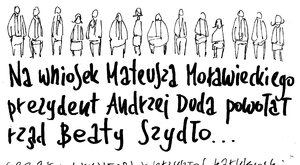 Na wniosek Mateusza Morawieckiego
prezydent Andrzej Doda powołał
rząd Beaty Szydło...